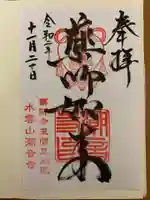 奉拝
薬師如来
令和二年
十一月二十日
水雲山潮音寺